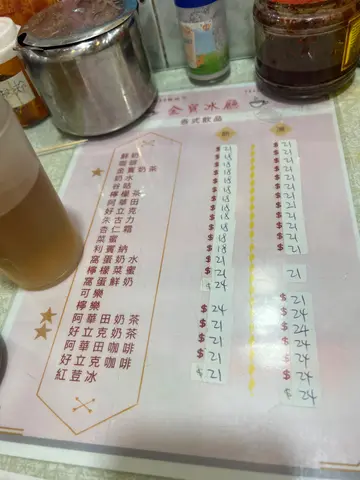 金寶冰廳
各式飲品
熱 凍
鮮奶 $21 $21
咖啡 $18 $21
金寶奶茶 $18 $21
奶水 $18 $21
谷咕 $18 $21
檸檬茶 $18 $21
阿華田 $18 $21
好立克 $18 $21
朱古力 $18 $21
杏仁霜 $18 $21
菜蜜 $18 $21
利賓納 $18 $21
窩蛋奶水 $21
檸檬菜蜜 $21 21
窩蛋鮮奶 $24
可樂 $21
檸樂 $24 $24
阿華田奶茶 $21 $24
好立克奶茶 $21 $24
阿華田咖啡 $21 $24
好立克咖啡 $21 $24
紅荳冰 $24